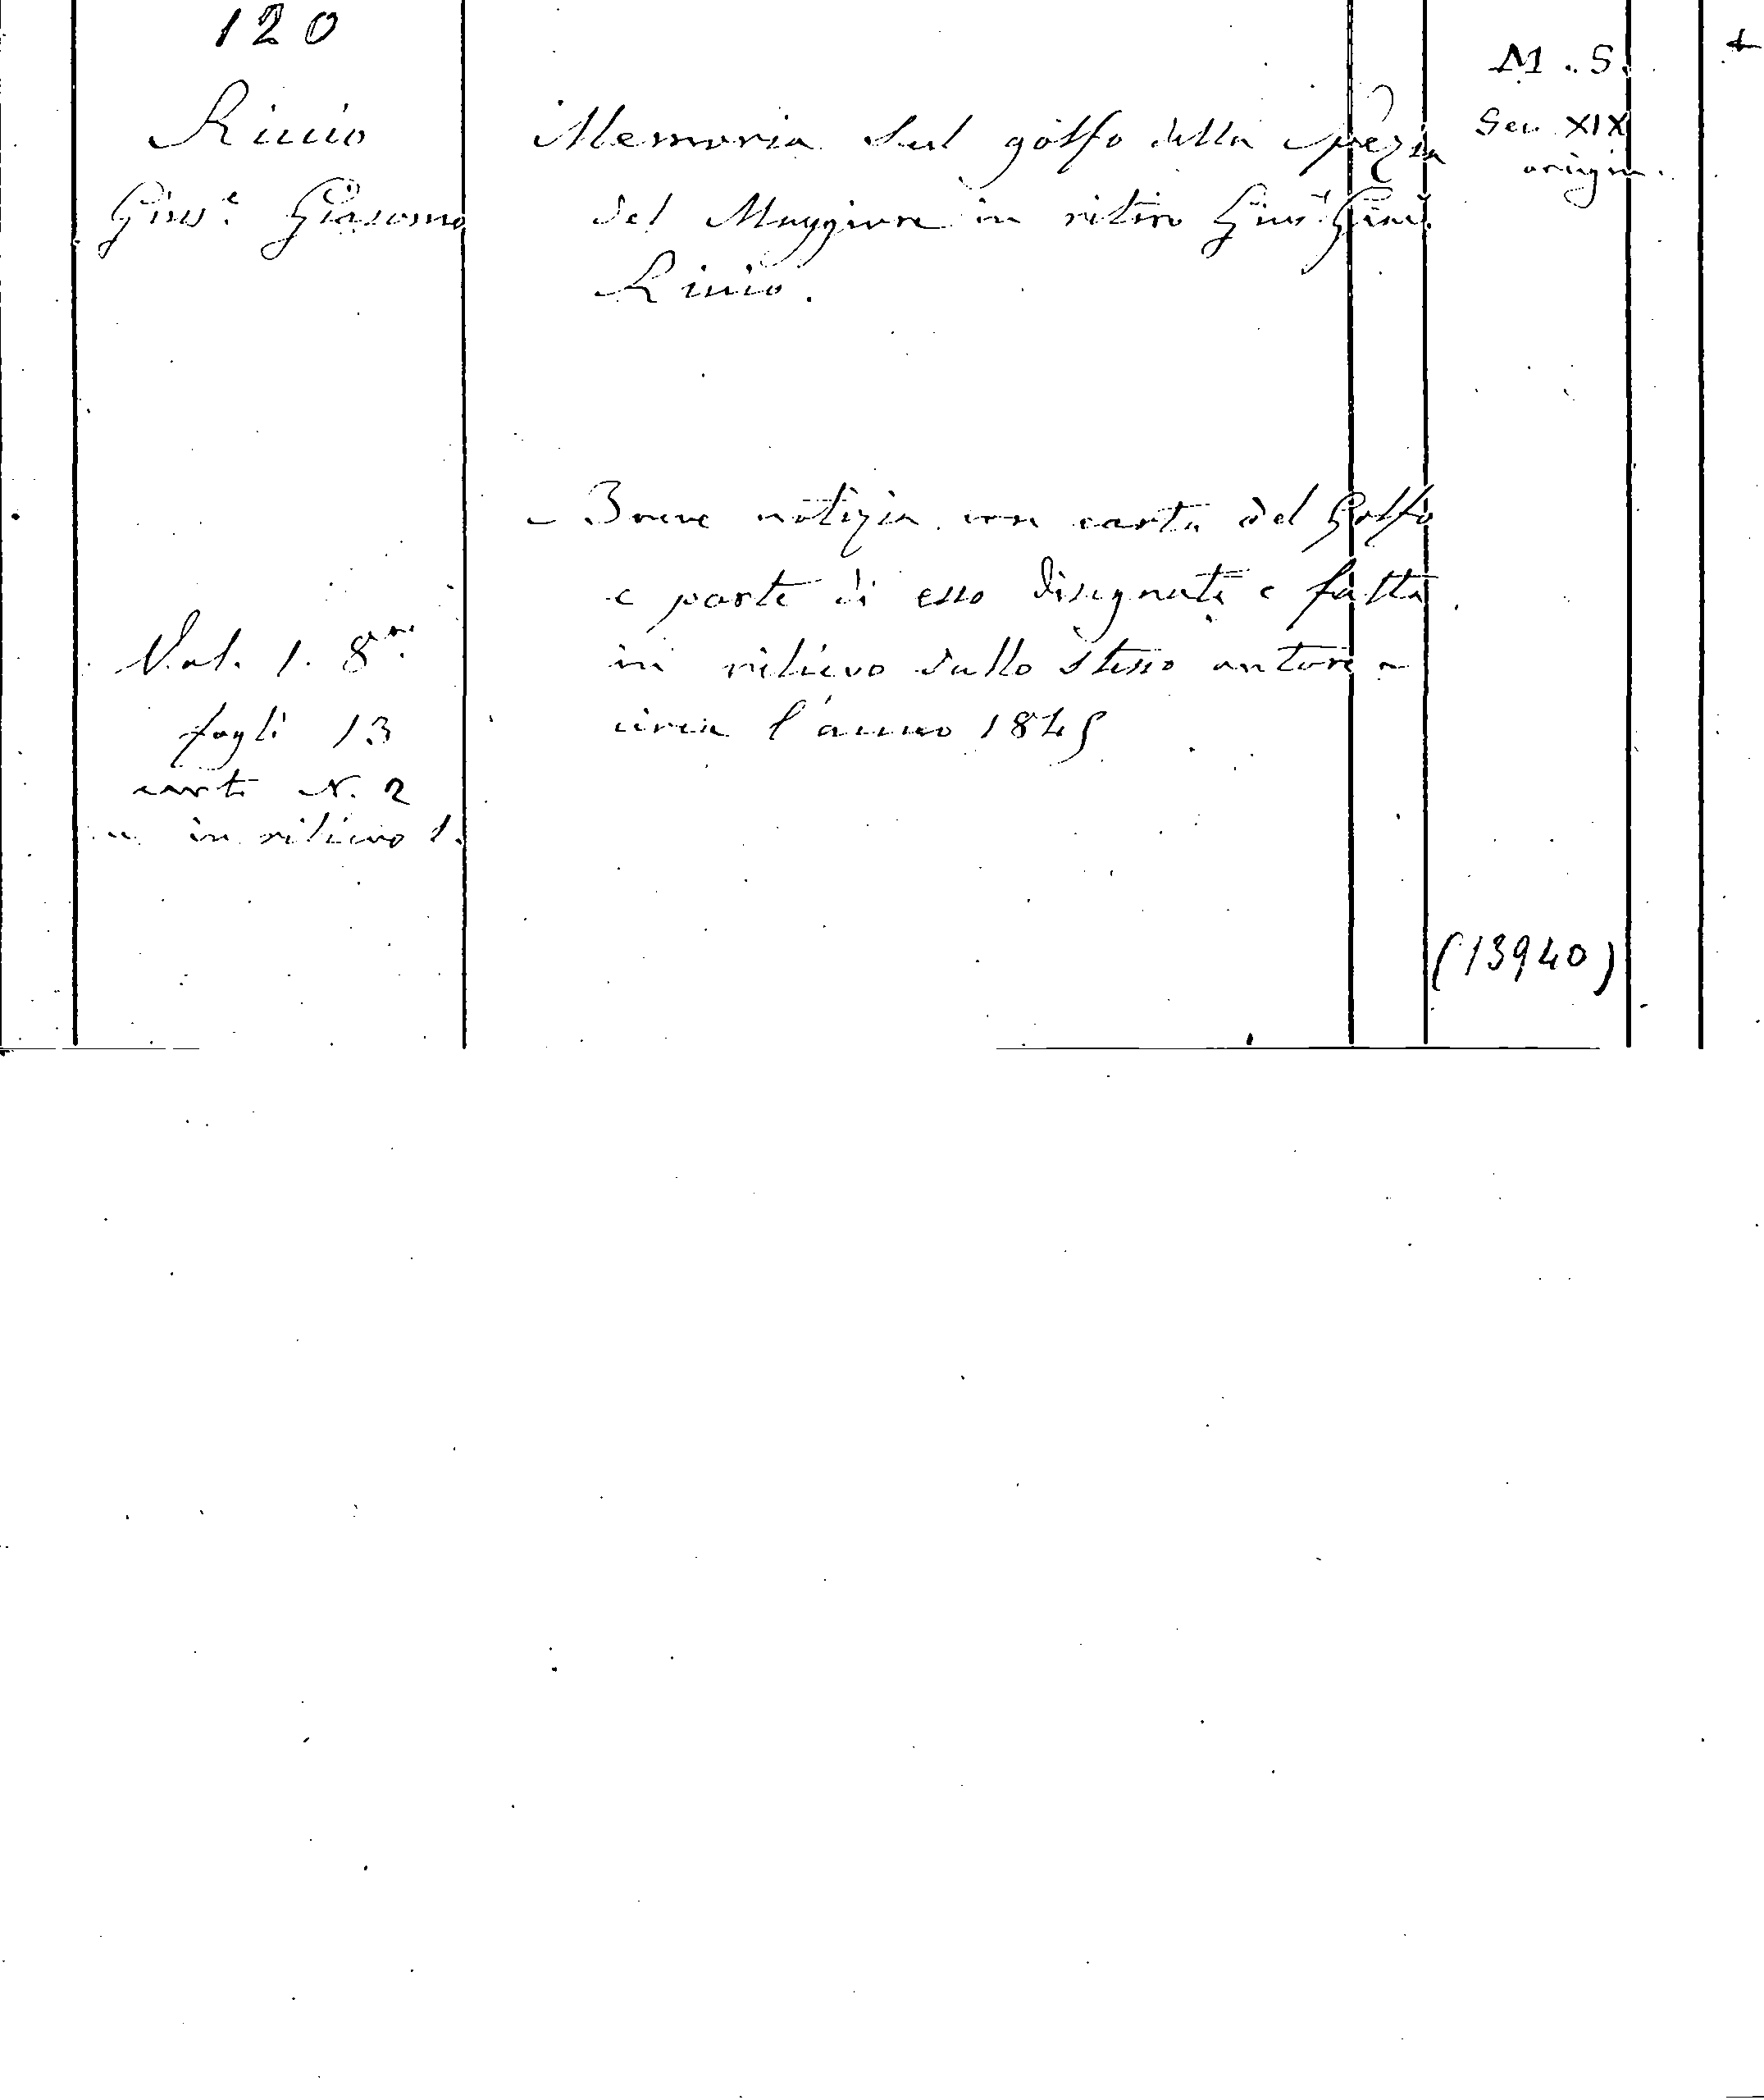 120
Riccio
Gius.e Giacomo
Vol. 1. 8vo.
fogli 13
carte N. 2
" in rilievo 1.
Memoria sul golfo della Spezia
del Maggiore in ritiro Gius.e Giac.
Riccio.
- Breve notizia con carta del Golfo
e parte di esso disegnata e fatta
in rilievo dallo stesso autore -
circa l'anno 1845
M.S.
Sec. XIX
origin.
(13940)
+